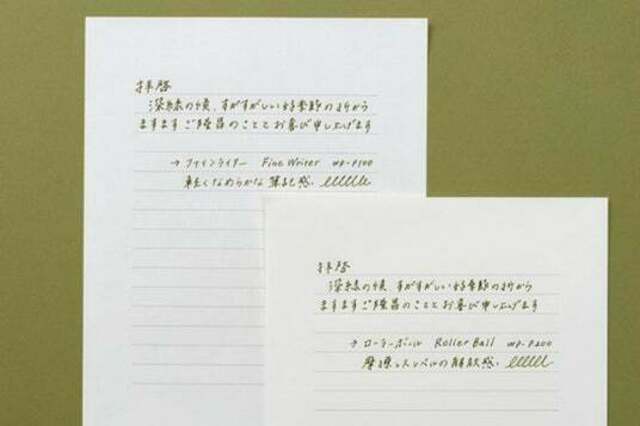 拝啓
深緑の候、すがすがしい好季節の折から
ますますご隆昌のこととお喜び申し上げます
→ ファインライター Fine Writer WP-F100
軽くなめらかな筆記感。
拝啓
深緑の候、すがすがしい好季節の折から
ますますご隆昌のこととお喜び申し上げます
→ ローラーボール Roller Ball WP-F200
摩擦レスレベルの解放感。